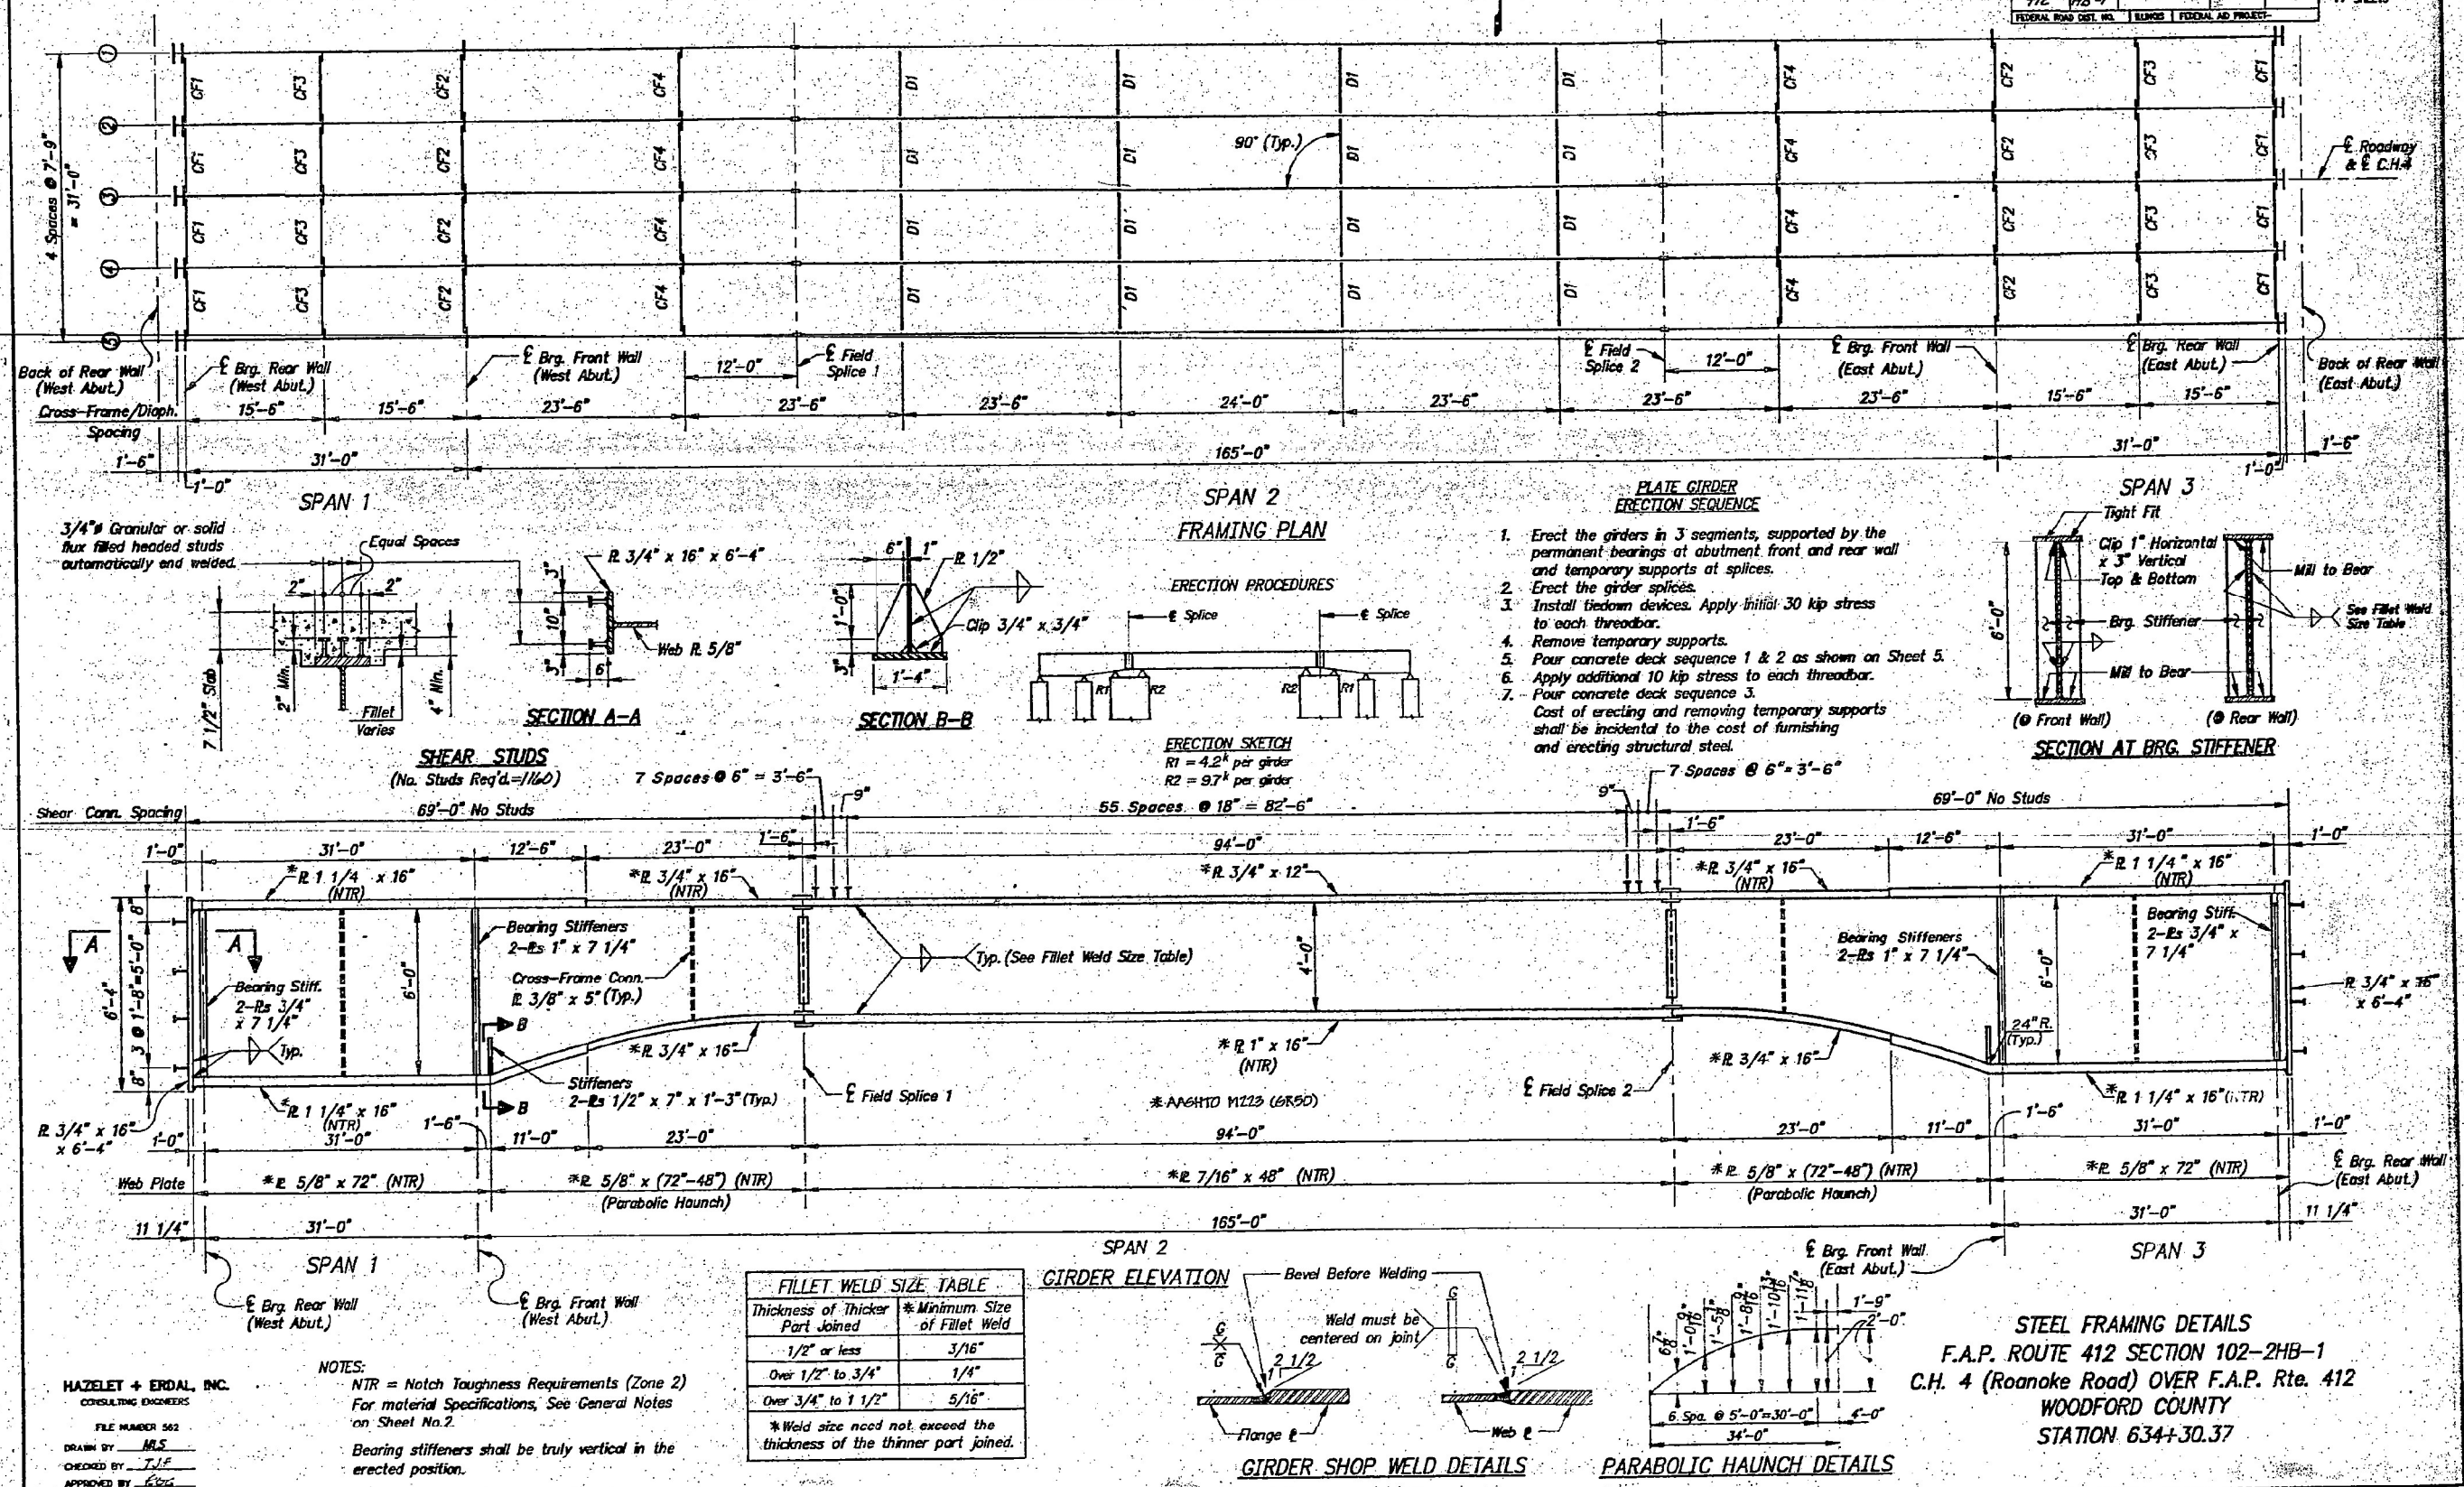 FEDERAL ROAD DIST. NO. ILLINOIS FEDERAL AID PROJECT-
1 2 3 4 5
4 Spaces @ 7'-9"
= 31'-0"
CF1 CF3 CF2 CF4 D1 D1 D1 D1 CF4 CF2 CF3 CF1
CF1 CF3 CF2 CF4 D1 D1 D1 D1 CF4 CF2 CF3 CF1
CF1 CF3 CF2 CF4 D1 D1 D1 D1 CF4 CF2 CF3 CF1
CF1 CF3 CF2 CF4 D1 D1 D1 D1 CF4 CF2 CF3 CF1
90° (Typ.)
℄ Roadway
& ℄ C.H.4
Back of Rear Wall
(West Abut.)
℄ Brg. Rear Wall
(West Abut.)
℄ Brg. Front Wall
(West Abut.)
12'-0"
℄ Field
Splice 1
℄ Field
Splice 2
12'-0"
℄ Brg. Front Wall
(East Abut.)
℄ Brg. Rear Wall
(East Abut.)
Back of Rear Wall
(East Abut.)
Cross-Frame/Diaph.
Spacing
15'-6" 15'-6" 23'-6" 23'-6" 23'-6" 24'-0" 23'-6" 23'-6" 23'-6" 15'-6" 15'-6"
1'-6" 31'-0" 165'-0" 31'-0" 1'-6"
1'-0" 1'-0"
SPAN 1 SPAN 2 SPAN 3
FRAMING PLAN
3/4"ø Granular or solid
flux filled headed studs
automatically end welded.
Equal Spaces
2" 2"
7 1/2" Slab
2" Min.
4" Min.
Fillet
Varies
SHEAR STUDS
(No. Studs Req'd.=1160)
℞ 3/4" x 16" x 6'-4"
3"
10"
3"
6"
Web ℞ 5/8"
SECTION A-A
6" 1"
℞ 1/2"
1'-0"
3"
Clip 3/4" x 3/4"
1'-4"
SECTION B-B
ERECTION PROCEDURES
℄ Splice ℄ Splice
R1 R2 R2 R1
ERECTION SKETCH
R1 = 4.2ᵏ per girder
R2 = 9.7ᵏ per girder
PLATE GIRDER
ERECTION SEQUENCE
1. Erect the girders in 3 segments, supported by the
permanent bearings at abutment front and rear wall
and temporary supports at splices.
2. Erect the girder splices.
3. Install tiedown devices. Apply initial 30 kip stress
to each threadbar.
4. Remove temporary supports.
5. Pour concrete deck sequence 1 & 2 as shown on Sheet 5.
6. Apply additional 10 kip stress to each threadbar.
7. Pour concrete deck sequence 3.
Cost of erecting and removing temporary supports
shall be incidental to the cost of furnishing
and erecting structural steel.
Tight Fit
Clip 1" Horizontal
x 3" Vertical
Top & Bottom
Mill to Bear
6'-0"
Brg. Stiffener
See Fillet Weld
Size Table
Mill to Bear
(@ Front Wall) (@ Rear Wall)
SECTION AT BRG. STIFFENER
7 Spaces @ 6" = 3'-6"
9"
9"
7 Spaces @ 6" = 3'-6"
Shear Conn. Spacing
69'-0" No Studs
55 Spaces @ 18" = 82'-6"
69'-0" No Studs
1'-6" 1'-6"
1'-0" 31'-0" 12'-6" 23'-0" 94'-0" 23'-0" 12'-6" 31'-0" 1'-0"
*℞ 1 1/4 x 16"
(NTR)
*℞ 3/4" x 16"
(NTR)
*℞ 3/4" x 12"
*℞ 3/4" x 16"
(NTR)
*℞ 1 1/4" x 16"
(NTR)
8"
6'-4"
3 @ 1'-8"=5'-0"
8"
A A
6'-0"
Bearing Stiff.
2-℞s 3/4"
x 7 1/4"
Typ.
Bearing Stiffeners
2-℞s 1" x 7 1/4"
Cross-Frame Conn.
℞ 3/8" x 5" (Typ.)
B
B
Typ. (See Fillet Weld Size Table)
4'-0"
Bearing Stiffeners
2-℞s 1" x 7 1/4"
6'-0"
Bearing Stiff.
2-℞s 3/4" x
7 1/4"
℞ 3/4" x 16"
x 6'-4"
24" R.
(Typ.)
*℞ 3/4" x 16"
*℞ 1" x 16"
(NTR)
*℞ 3/4" x 16"
Stiffeners
2-℞s 1/2" x 7" x 1'-3" (Typ.)
℄ Field Splice 1
* AASHTO M223 (GR50)
℄ Field Splice 2
*℞ 1 1/4" x 16"
(NTR)
*℞ 1 1/4" x 16" (NTR)
℞ 3/4" x 16"
x 6'-4"
1'-0" 31'-0" 1'-6" 11'-0" 23'-0" 94'-0" 23'-0" 11'-0" 1'-6" 31'-0" 1'-0"
Web Plate
*℞ 5/8" x 72" (NTR)
*℞ 5/8" x (72"-48") (NTR)
(Parabolic Haunch)
*℞ 7/16" x 48" (NTR)
*℞ 5/8" x (72"-48") (NTR)
(Parabolic Haunch)
*℞ 5/8" x 72" (NTR)
℄ Brg. Rear Wall
(East Abut.)
11 1/4" 31'-0" 165'-0" 31'-0" 11 1/4"
SPAN 1 SPAN 2 SPAN 3
℄ Brg. Rear Wall
(West Abut.)
℄ Brg. Front Wall
(West Abut.)
℄ Brg. Front Wall
(East Abut.)
GIRDER ELEVATION
FILLET WELD SIZE TABLE
Thickness of Thicker
Part Joined
*Minimum Size
of Fillet Weld
1/2" or less 3/16"
Over 1/2" to 3/4" 1/4"
Over 3/4" to 1 1/2" 5/16"
*Weld size need not exceed the
thickness of the thinner part joined.
Bevel Before Welding
Weld must be
centered on joint
G G
G G
2 1/2
1
2 1/2
1
Flange ℞
Web ℞
GIRDER SHOP WELD DETAILS
1'-9"
2'-0"
6 Spa. @ 5'-0"=30'-0" 4'-0"
34'-0"
PARABOLIC HAUNCH DETAILS
NOTES:
NTR = Notch Toughness Requirements (Zone 2)
For material Specifications, See General Notes
on Sheet No.2.
Bearing stiffeners shall be truly vertical in the
erected position.
HAZELET + ERDAL, INC.
CONSULTING ENGINEERS
FILE NUMBER 562
DRAWN BY MLS
CHECKED BY TJF
APPROVED BY
STEEL FRAMING DETAILS
F.A.P. ROUTE 412 SECTION 102-2HB-1
C.H. 4 (Roanoke Road) OVER F.A.P. Rte. 412
WOODFORD COUNTY
STATION 634+30.37